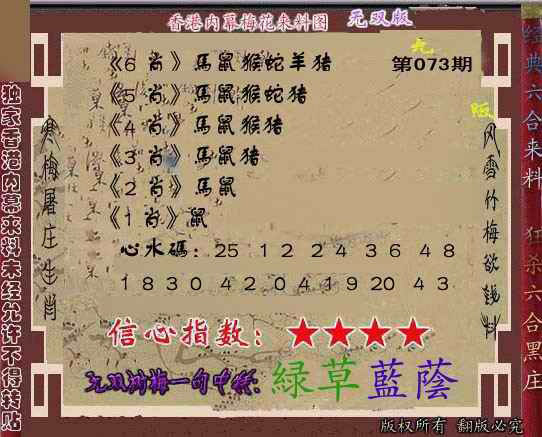 香港内幕梅花来料图 无双版
《6 肖》馬鼠猴蛇羊猪 第073期
《5 肖》馬鼠猴蛇猪
《4 肖》馬鼠猴猪
《3 肖》馬鼠猪
《2 肖》馬鼠
《1 肖》鼠
心水碼: 25 12 24 36 48
18 30 42 04 19 20 43
信心指数: ★★★★
无双湖梅一句中特: 緑草藍蔭
版权所有 翻版必究
独家香港内幕来料未经允许不得转贴
寒梅屠庄生肖
风雪竹梅欲钱料
无
版
经典六合来料
狂杀六合黑庄